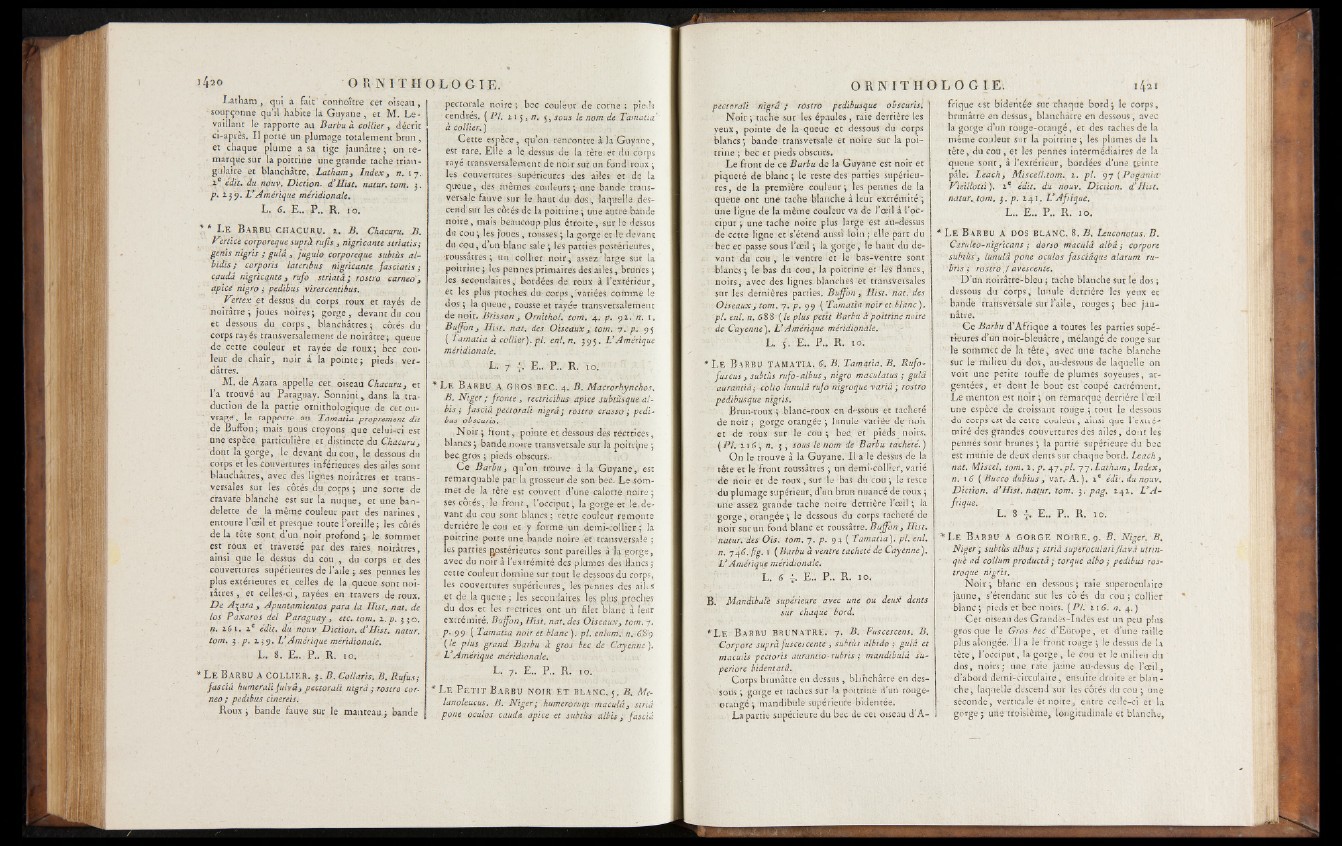 1420 ORNITHOLOGIE.
Latham, qui a fait connoître cet oiseau,
soupçonne qu'il habite la Guyane, et M. Le-
vaillant le rapporte au Barbu à collier, décrit
ci-après. Il porte un plumage totalement brun,
et chaque plume a sa tige jaunâtre; on re-
marque sur la poitrine une grande tache trian-
gulaire et blanchâtre. Latham, Index, n. 17.
2e édit. du nouv. Diction. d'Hist. natur. tom. 3.
p. 239. L'Amérique méridionale.
L. 6. E.. P.. R. 10.
** LE BARBU CHACURU. 2. B. Chacuru. B.
Vertice corporeque suprà rufis, nigricante striatis;
genis nigris; gulâ, jugulo corporeque subtùs al-
bidis; corporis lateribus nigricante fasciatis;
caudâ nigricante, rufo striatâ; rostro carneo,
apice nigro; pedibus virescentibus.
Vertex et dessus du corps roux et rayés de
noirâtre; joues noires; gorge, devant du cou
et dessous du corps, blanchâtres; côtés du
corps rayés transversalement de noirâtre; queue
de cette couleur et rayée de roux; bec cou-
leur de chair, noir à la pointe; pieds ver-
dâtres.
M. de Azara appelle cet oiseau Chacuru, et
l'a trouvé au Paraguay. Sonnini, dans la tra-
duction de la partie ornithologique de cet ou-
vrage, le rapporte au Tamatia proprement dit
de Buffon; mais nous croyons que celui-ci est
une espèce particulière et distincte du Chacuru,
dont la gorge, le devant du cou, le dessous du
corps et les couvertures inférieures des ailes sont
blanchâtres, avec des lignes noirâtres et trans-
versales sur les côtés du corps; une sorte de
cravate blanche est sur la nuque, et une ban-
delette de la même couleur part des narines,
entoure l'œil et presque toute l'oreille; les côtés
de la tête sont d'un noir profond; le sommet
est roux et traversé par des raies noirâtres,
ainsi que le dessus du cou, du corps et des
couvertures supérieures de l'aile; ses pennes les
plus extérieures et celles de la queue sont noi-
râtres, et celles-ci, rayées en travers de roux.
De Azara, Apuntamientos para la Hist. nat. de
los Paxaros del Paraguay, etc. tom. 2. p. 330.
n. 261. 2e édit. du nouv Diction. d'Hist. natur.
tom. 3. p. 239. L'Amérique méridionale.
L. 8. E.. P.. R. 10.
* LE BARBU A COLLIER. 3. B. Collaris. B. Rufus;
fasciâ humerali fulvâ, pectorali nigrâ; rostro cor-
neo; pedibus cinereis.
Roux; bande fauve sur le manteau; bande
pectorale noire; bec couleur de corne; pieds
cendrés. (Pl. 215, n. 5, sous le nom de Tamatia
à collier.)
Cette espèce, qu'on rencontre à la Guyane,
est rare. Elle a le dessus de la tête et du corps
rayé transversalement de noir sur un fond roux,
les couvertures supérieures des ailes et de la
queue, des mêmes couleurs; une bande trans-
versale fauve sur le haut du dos, laquelle des-
cend sur les côtés de la poitrine; une autre bande
noire, mais beaucoup plus étroite, sur le dessus
du cou; les joues, rousses; la gorge et le devant
du cou, d'un blanc sale; les parties postérieures,
roussâtres; un collier noir, assez large sur la
poitrine; les pennes primaires des ailes, brunes;
les secondaires, bordées de roux à l'extérieur,
et les plus proches du corps, variées comme le
dos; la queue, rousse et rayée transversalement
de noir. Brisson, Ornithol. tom. 4. p. 92. n. 1.
Buffon, Hist. nat. des Oiseaux, tom. 7. p. 95
(Tamatia à collier). pl. enl. n. 395. L'Amérique
méridionale.
L. 7 ½. E.. P.. R. 10.
* LE BARBU A GROS BEC. 4. B. Macrorhynchos.
B. Niger; fronte, rectricibus apice subtùsque al-
bis; fasciâ pectorali nigrâ; rostro crasso; pedi-
bus obscuris.
Noir; front, pointe et dessous des rectrices,
blancs; bande noire transversale sur la poitrine;
bec gros; pieds obscurs.
Ce Barbu, qu'on trouve à la Guyane, est
remarquable par la grosseur de son bec. Le som-
met de la tête est couvert d'une calotte noire;
ses côtés, le front, l'occiput, la gorge et le de-
vant du cou sont blancs; cette couleur remonte
derrière le cou et y forme un demi-collier; la
poitrine porte une bande noire et transversale;
les parties postérieures sont pareilles à la gorge,
avec du noir à l'extrémité des plumes des flancs;
cette couleur domine sur tout le dessous du corps,
les couvertures supérieures, les pennes des ailes
et de la queue; les secondaires les plus proches
du dos et les rectrices ont un filet blanc à leur
extrémité. Buffon, Hist. nat. des Oiseaux, tom. 7.
p. 99 (Tamatia noir et blanc). pl. enlum. n. 689
(le plus grand Barbu à gros bec de Cayenne).
L'Amérique méridionale.
L. 7. E.. P.. R. 10.
* LE PETIT BARBU NOIR ET BLANC. 5. B. Me-
lanoleucus. B. Niger; humerorum maculâ, striâ
pone oculos caudæ apice et subtùs albis, fasciâ
ORNITHOLOGIE. 1421
pectorali nigrâ; rostro pedibusque obscuris.
Noir; tache sur les épaules, raie derrière les
yeux, pointe de la queue et dessous du corps
blancs; bande transversale et noire sur la poi-
trine; bec et pieds obscurs.
Le front de ce Barbu de la Guyane est noir et
piqueté de blanc; le reste des parties supérieu-
res, de la première couleur; les pennes de la
queue ont une tache blanche à leur extrémité;
une ligne de la même couleur va de l'œil à l'oc-
ciput; une tache noire plus large est au-dessus
de cette ligne et s'étend aussi loin; elle part du
bec et passe sous l'œil; la gorge, le haut du de-
vant du cou, le ventre et le bas-ventre sont
blancs; le bas du cou, la poitrine et les flancs,
noirs, avec des lignes blanches et transversales
sur les dernières parties. Buffon, Hist. nat. des
Oiseaux, tom. 7. p. 99 (Tamatia noir et blanc).
pl. enl. n. 688 (le plus petit Barbu à poitrine noire
de Cayenne). L'Amérique méridionale.
L. 5. E.. P.. R. 10.
* LE BARBU TAMATIA. 6. B. Tamatia. B. Rufo-
fuscus, subtùs rufo-albus, nigro maculatus; gulâ
aurantiâ; collo lunulâ rufo nigroque variâ; rostro
pedibusque nigris.
Brun-roux; blanc-roux en dessous et tacheté
de noir; gorge orangée; lunule variée de noir
et de roux sur le cou; bec et pieds noirs.
(Pl. 216, n. 3, sous le nom de Barbu tacheté.)
On le trouve à la Guyane. Il a le dessus de la
tête et le front roussâtres; un demi-collier, varié
de noir et de roux, sur le bas du cou; le reste
du plumage supérieur, d'un brun nuancé de roux;
une assez grande tache noire derrière l'œil; la
gorge, orangée; le dessous du corps tacheté de
noir sur un fond blanc et roussâtre. Buffon, Hist.
natur. des Ois. tom. 7. p. 94 (Tamatia). pl. enl.
n. 746. fig. 1 (Barbu à ventre tacheté de Cayenne).
L'Amérique méridionale.
L. 6 ½. E.. P.. R. 10.
B. Mandibule supérieure avec une ou deux dents
sur chaque bord.
* LE BARBU BRUNATRE. 7. B. Fuscescens. B.
Corpore suprà fuscescente, subtùs albido; gulâ et
maculis pectoris aurantio-rubris; mandibulâ su-
periore bidentatâ.
Corps brunâtre en dessus, blanchâtre en des-
sous; gorge et taches sur la poitrine d'un rouge-
orangé; mandibule supérieure bidentée.
La partie supérieure du bec de cet oiseau d'A-
frique est bidentée sur chaque bord; le corps,
brunâtre en dessus, blanchâtre en dessous, avec
la gorge d'un rouge-orangé, et des taches de la
même couleur sur la poitrine; les plumes de la
tête, du cou, et les pennes intermédiaires de la
queue sont, à l'extérieur, bordées d'une teinte
pâle. Leach, Miscell. tom. 2. pl. 97 (Pogonia
Vieilloti). 2e édit. du nouv. Diction. d'Hist.
natur. tom. 3. p. 241. L'Afrique.
L.. E.. P.. R. 10.
* LE BARBU A DOS BLANC. 8. B. Leuconotus. B.
Cæruleo-nigricans; dorso maculâ albâ; corpore
subtùs, lunulâ pone oculos fasciâque alarum ru-
bris; rostro flavescente.
D'un noirâtre-bleu; tache blanche sur le dos;
dessous du corps, lunule derrière les yeux et
bande transversale sur l'aile, rouges; bec jau-
nâtre.
Ce Barbu d'Afrique a toutes les parties supé-
rieures d'un noir-bleuâtre, mélangé de rouge sur
le sommet de la tête, avec une tache blanche
sur le milieu du dos, au-dessous de laquelle on
voit une petite touffe de plumes soyeuses, ar-
gentées, et dont le bout est coupé carrément.
Le menton est noir; on remarque derrière l'œil
une espèce de croissant rouge; tout le dessous
du corps est de cette couleur, ainsi que l'extré-
mité des grandes couvertures des ailes, dont les
pennes sont brunes; la partie supérieure du bec
est munie de deux dents sur chaque bord. Leach,
nat. Miscel. tom. 2. p. 47. pl. 77. Latham, Index,
n. 16 (Bucco dubius, var. A.). 2e édit. du nouv.
Diction. d'Hist. natur. tom. 3. pag. 242. L'A-
frique.
L. 8 ½. E.. P.. R. 10.
* LE BARBU A GORGE NOIRE. 9. B. Niger. B.
Niger; subtùs albus; striâ superoculari flavâ utrin-
què ad collum productâ; torque albo; pedibus ros-
troque nigris.
Noir; blanc en dessous; raie superoculaire
jaune, s'étendant sur les côtés du cou; collier
blanc; pieds et bec noirs. (Pl. 216. n. 4.)
Cet oiseau des Grandes-Indes est un peu plus
gros que le Gros bec d'Europe, et d'une taille
plus alongée. Il a le front rouge; le dessus de la
tête, l'occiput, la gorge, le cou et le milieu du
dos, noirs; une raie jaune au-dessus de l'œil,
d'abord demi-circulaire, ensuite droite et blan-
che, laquelle descend sur les côtés du cou; une
seconde, verticale et noire, entre celle-ci et la
gorge; une troisième, longitudinale et blanche,